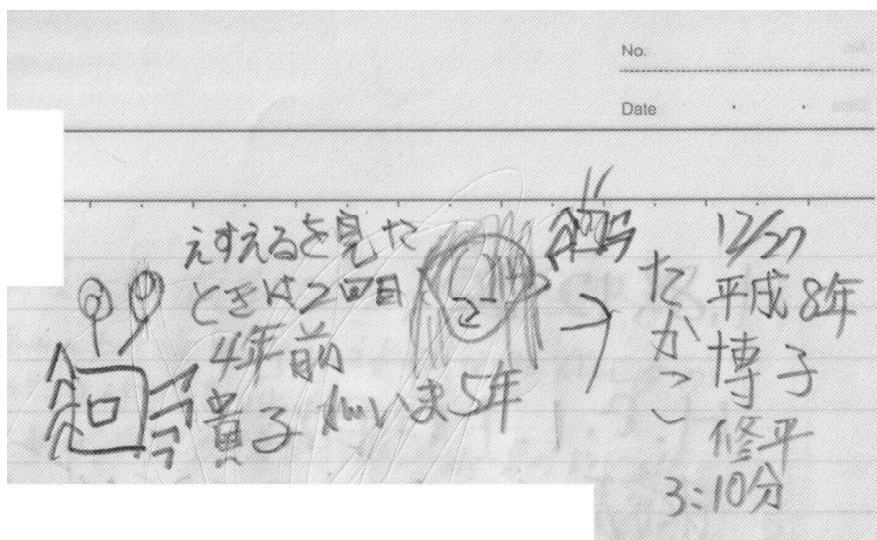 No.
Date
えすえるを見た
ときは2回目
4年前
貴子 いま5年
たかこ
12/27
平成8年
博子
修平
3:10分